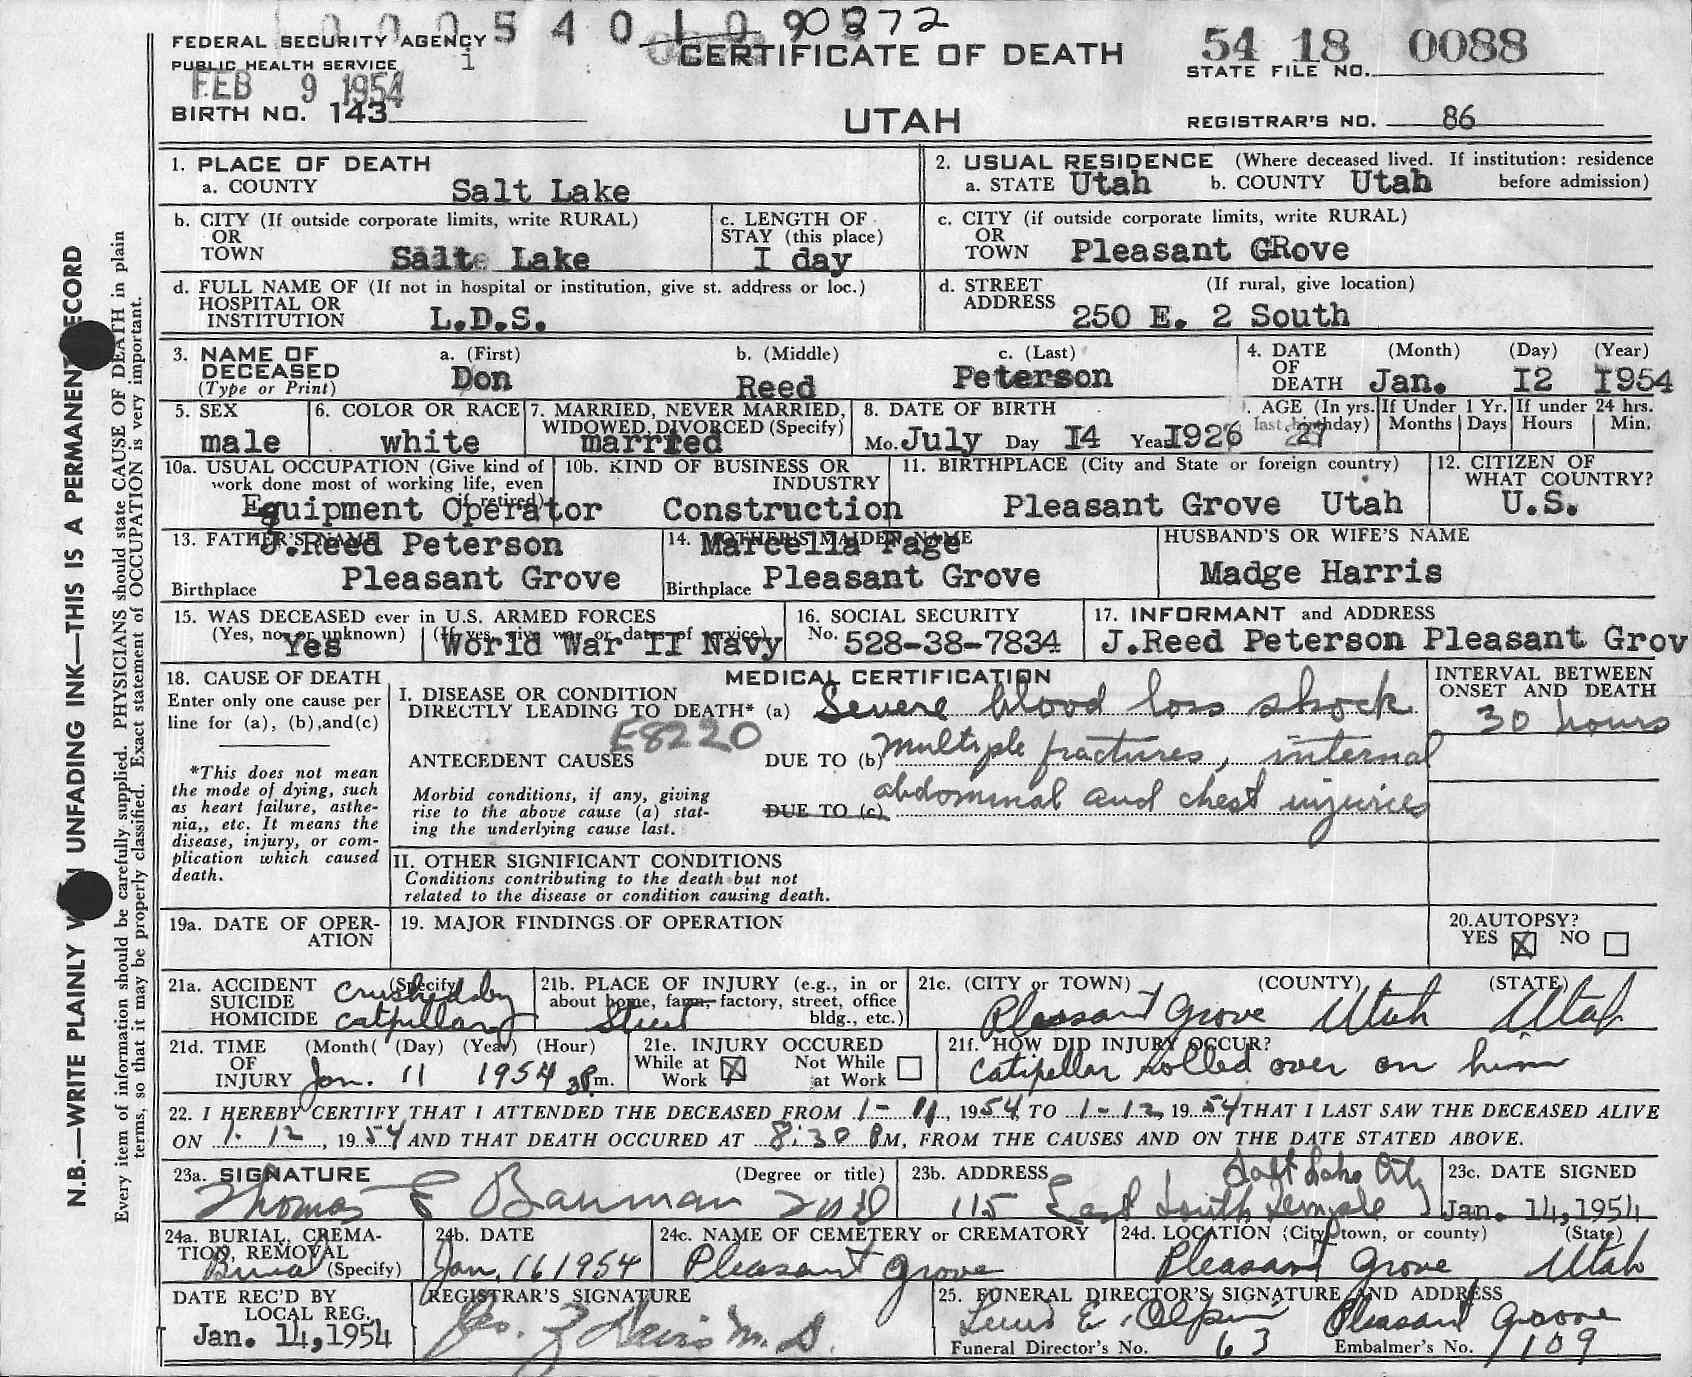 0 0 0 5 4 0 1 0 9 0872
FEDERAL SECURITY AGENCY
PUBLIC HEALTH SERVICE
FEB 9 1954
BIRTH NO. 143
CERTIFICATE OF DEATH
UTAH
54 18 0088
STATE FILE NO.
REGISTRAR'S NO. 86
N.B.—WRITE PLAINLY UNFADING INK—THIS IS A PERMANENT RECORD
Every item of information should be carefully supplied. PHYSICIANS should state CAUSE OF DEATH in plain
terms, so that it may be properly classified. Exact statement of OCCUPATION is very important.
1. PLACE OF DEATH
a. COUNTY Salt Lake
2. USUAL RESIDENCE (Where deceased lived. If institution: residence
a. STATE Utah b. COUNTY Utah before admission)
b. CITY (If outside corporate limits, write RURAL)
OR
TOWN Salt Lake
c. LENGTH OF
STAY (this place)
I day
c. CITY (if outside corporate limits, write RURAL)
OR
TOWN Pleasant GRove
d. FULL NAME OF (If not in hospital or institution, give st. address or loc.)
HOSPITAL OR
INSTITUTION L.D.S.
d. STREET (If rural, give location)
ADDRESS 250 E. 2 South
3. NAME OF
DECEASED
(Type or Print)
a. (First) b. (Middle) c. (Last)
Don Reed Peterson
4. DATE (Month) (Day) (Year)
OF
DEATH Jan. I2 I954
5. SEX
male
6. COLOR OR RACE
white
7. MARRIED, NEVER MARRIED,
WIDOWED, DIVORCED (Specify)
married
8. DATE OF BIRTH
Mo. July Day I4 Year I926
. AGE (In yrs.
last birthday) 27
If Under 1 Yr.
Months Days
If under 24 hrs.
Hours Min.
10a. USUAL OCCUPATION (Give kind of
work done most of working life, even
if retired)
Equipment Operator
10b. KIND OF BUSINESS OR
INDUSTRY
Construction
11. BIRTHPLACE (City and State or foreign country)
Pleasant Grove Utah
12. CITIZEN OF
WHAT COUNTRY?
U.S.
13. FATHER'S NAME
J.Reed Peterson
Birthplace Pleasant Grove
14. MOTHER'S MAIDEN NAME
Marcella Page
Birthplace Pleasant Grove
HUSBAND'S OR WIFE'S NAME
Madge Harris
15. WAS DECEASED ever in U.S. ARMED FORCES
(Yes, no or unknown) (If yes, give war or dates of service)
Yes World War II Navy
16. SOCIAL SECURITY
No. 528-38-7834
17. INFORMANT and ADDRESS
J.Reed Peterson Pleasant Grov
18. CAUSE OF DEATH
Enter only one cause per
line for (a), (b), and (c)
*This does not mean
the mode of dying, such
as heart failure, asthe-
nia,, etc. It means the
disease, injury, or com-
plication which caused
death.
MEDICAL CERTIFICATION
I. DISEASE OR CONDITION
DIRECTLY LEADING TO DEATH* (a) Severe blood loss shock
E8220
ANTECEDENT CAUSES DUE TO (b) Multiple fractures, internal
Morbid conditions, if any, giving
rise to the above cause (a) stat-
ing the underlying cause last.
DUE TO (c) abdominal and chest injuries
INTERVAL BETWEEN
ONSET AND DEATH
30 hours
II. OTHER SIGNIFICANT CONDITIONS
Conditions contributing to the death but not
related to the disease or condition causing death.
19a. DATE OF OPER-
ATION
19. MAJOR FINDINGS OF OPERATION
20. AUTOPSY?
YES X NO
21a. ACCIDENT (Specify)
SUICIDE
HOMICIDE
Crushed by
Catpillar
21b. PLACE OF INJURY (e.g., in or
about home, farm, factory, street, office
bldg., etc.)
Street
21c. (CITY or TOWN) (COUNTY) (STATE)
Pleasant Grove Utah Utah
21d. TIME (Month( (Day) (Year) (Hour)
OF
INJURY Jan. 11 1954 3P m.
21e. INJURY OCCURED
While at Work X Not While at Work
21f. HOW DID INJURY OCCUR?
Catipellar rolled over on him
22. I HEREBY CERTIFY THAT I ATTENDED THE DECEASED FROM 1-11, 1954 TO 1-12, 1954 THAT I LAST SAW THE DECEASED ALIVE
ON 1-12, 1954 AND THAT DEATH OCCURED AT 8:30 PM, FROM THE CAUSES AND ON THE DATE STATED ABOVE.
23a. SIGNATURE (Degree or title)
Thomas E Bauman
23b. ADDRESS Salt Lake City
115 East South Temple
23c. DATE SIGNED
Jan. 14, 1954
24a. BURIAL, CREMA-
TION, REMOVAL
(Specify)
Burial
24b. DATE
Jan. 16 1954
24c. NAME OF CEMETERY OR CREMATORY
Pleasant Grove
24d. LOCATION (City, town, or county) (State)
Pleasant Grove Utah
DATE REC'D BY
LOCAL REG.
Jan. 14, 1954
REGISTRAR'S SIGNATURE
M.D.
25. FUNERAL DIRECTOR'S SIGNATURE AND ADDRESS
E. Olpin Pleasant Grove
Funeral Director's No. 63 Embalmer's No. 1109